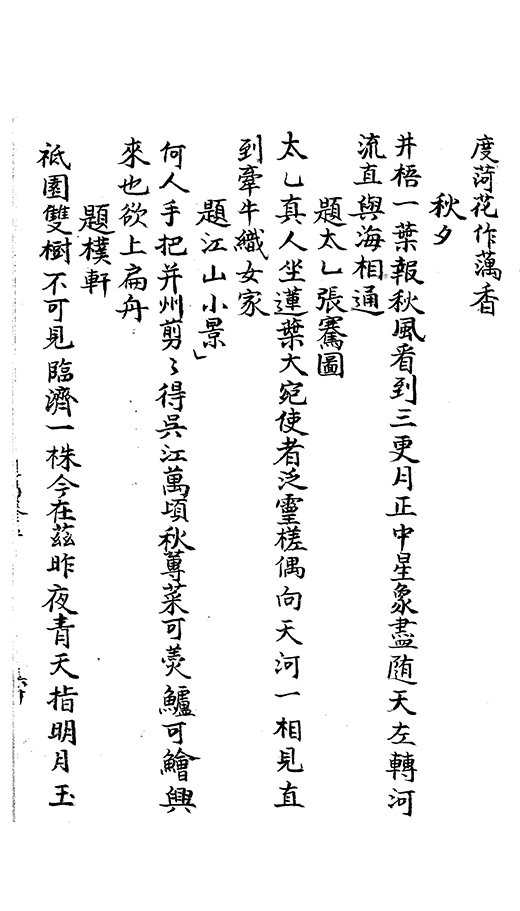 度荷花作藕香
秋夕
井梧一葉報秋風看到三更月正中星象盡随天左轉河
流直與海相通
題太乚張騫圖
太乚真人坐蓮葉大宛使者泛霊槎偶向天河一相見直
到牽牛織女家
題江山小景」
何人手把并州剪〻得吳江萬頃秋蓴菜可羮鱸可鱠興
來也欲上扁舟
題樸軒
祗園雙樹不可見臨濟一株今在茲昨夜青天指明月玉